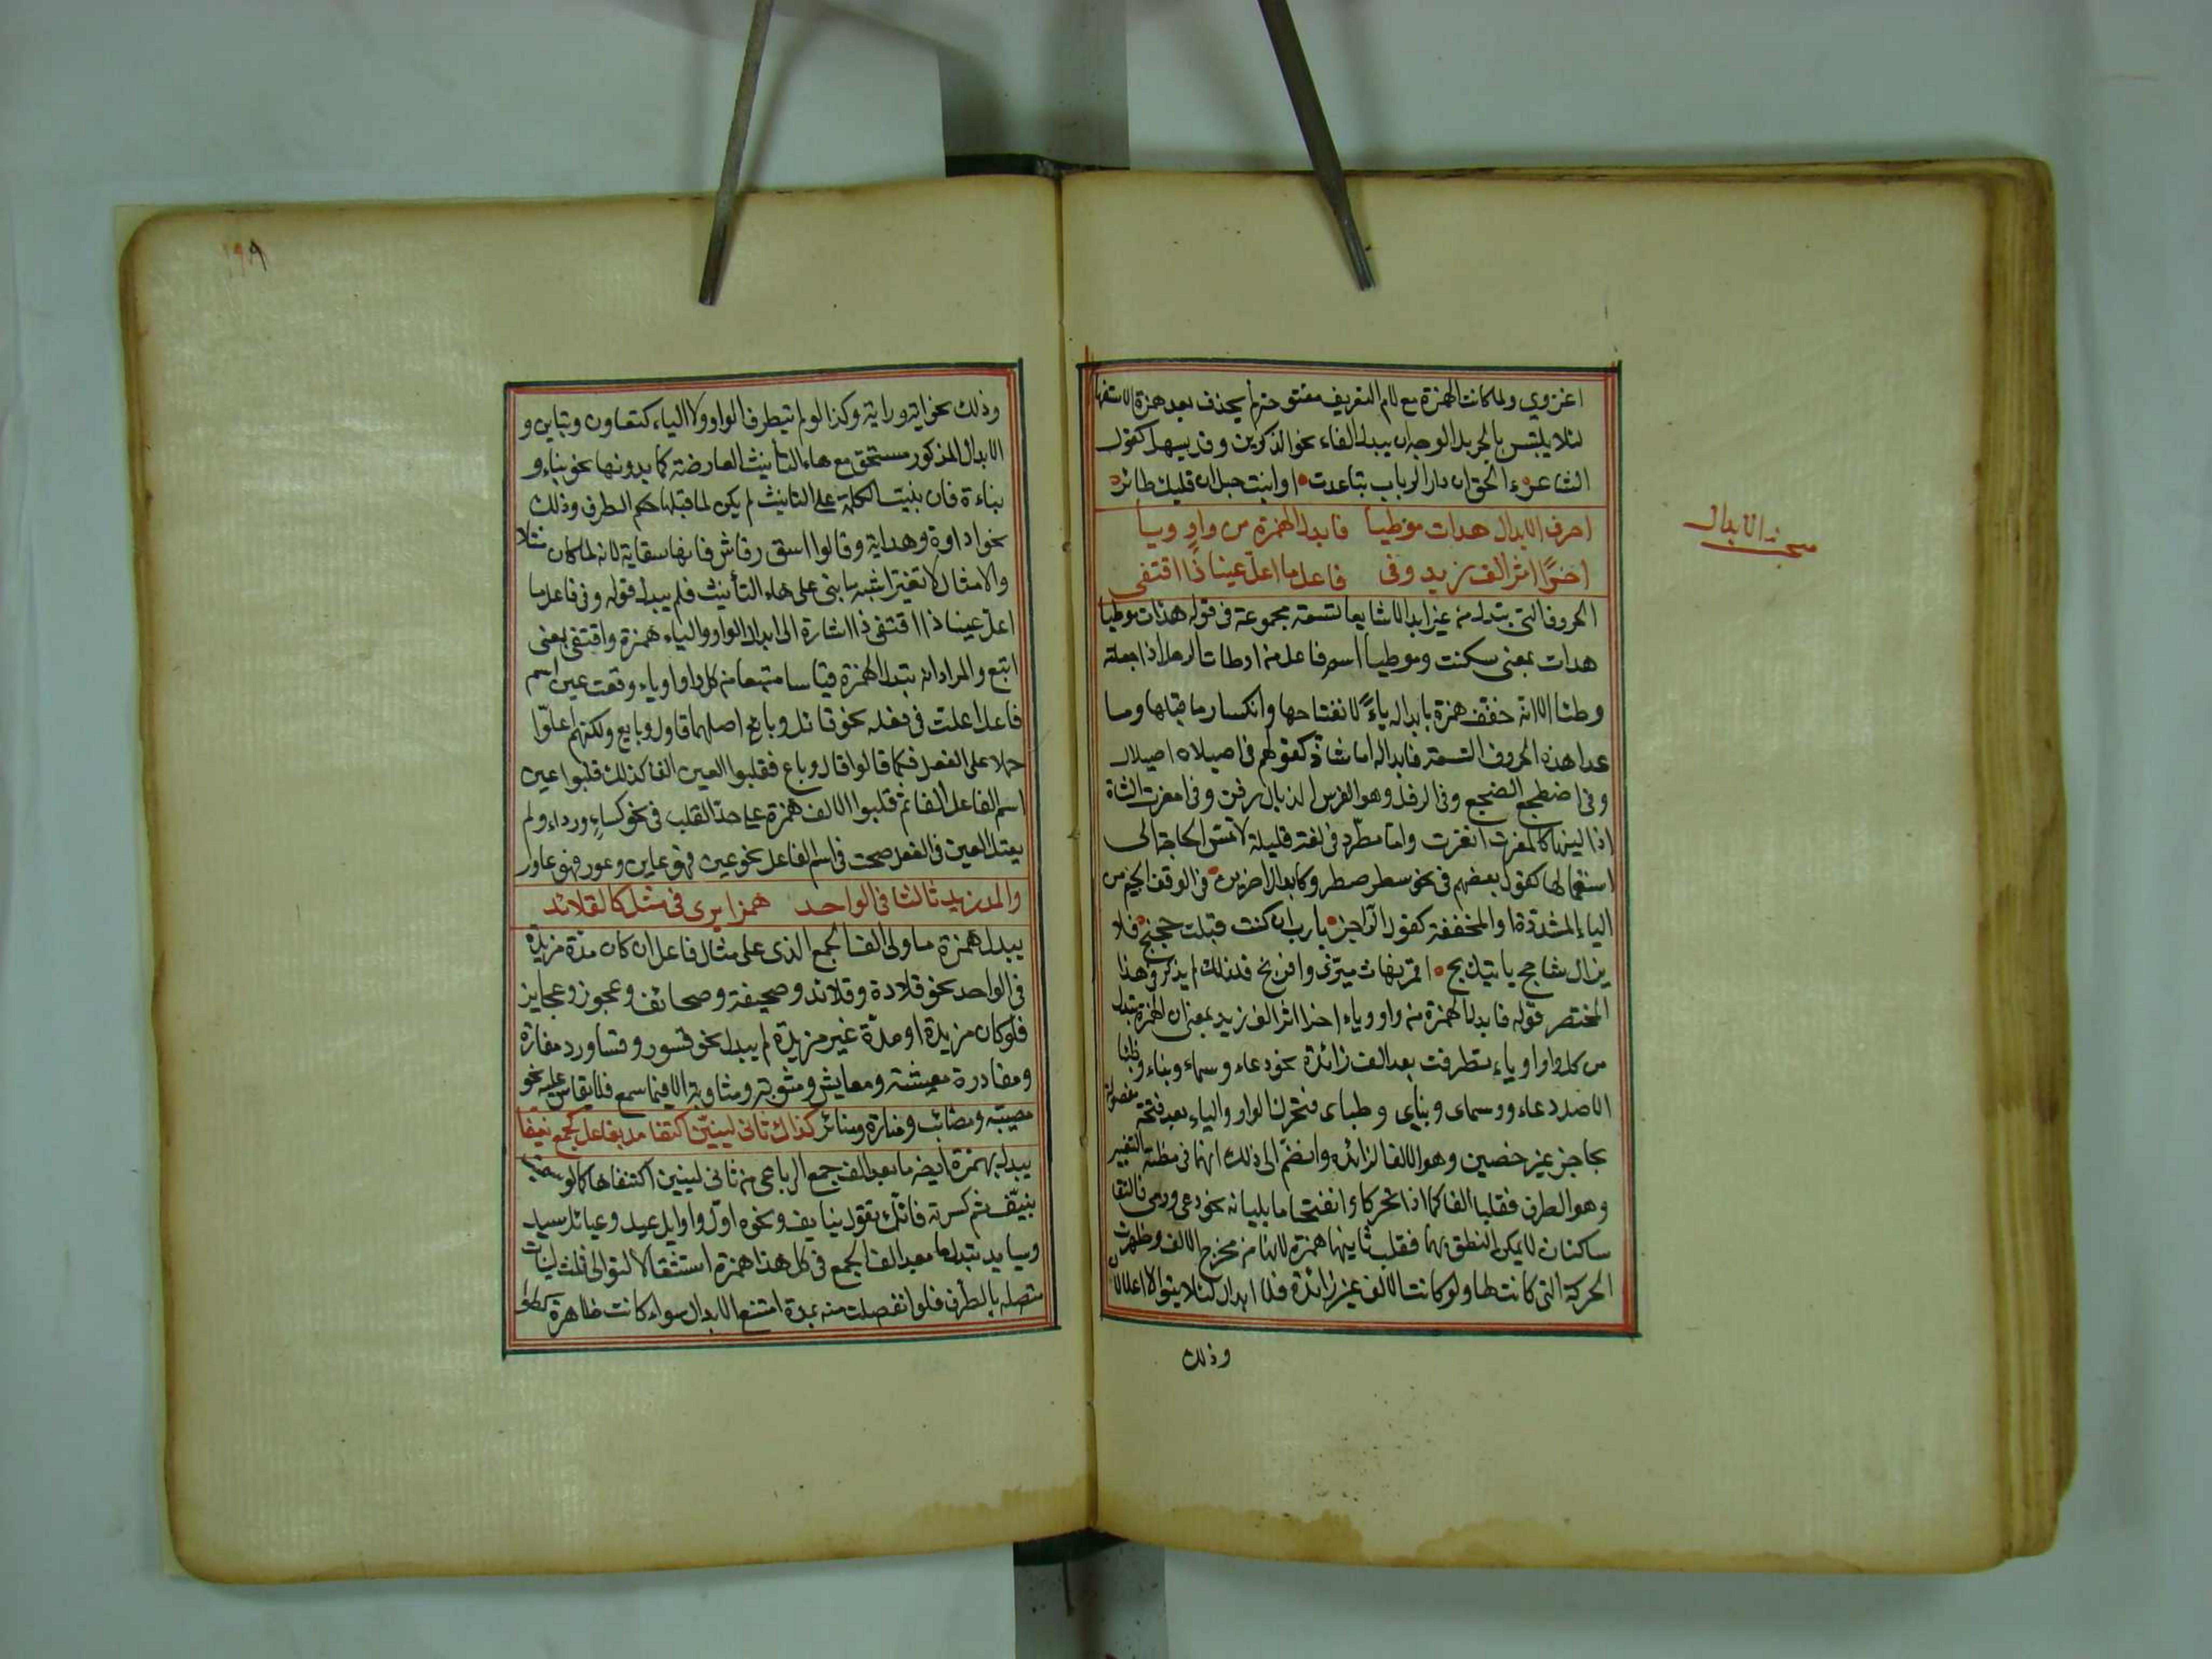 اغزوي ولما كانت الهمزة مع لام التعريف مفتوحة لم يحذف بعد همزة الاستفها
لئلا يلتبس بالخبر بل الوجه ان يبدل الفاء نحو الذكرين وقد يسهل كقول
الشاعر ءالحق ان دار الرباب تباعدت او انبت حبل ان قلبك طائر
احرف الابدال هدات موطيا فابدل الهمزة من واو ويا
اخرا اثر الف زيد وفي فاعل ما اعل عينا ذا اقتفي
مبحث الابدال
الحروف التي تبدل من غيرها ابدالا شايعا تسعة مجموعة في قوله هدات موطيا
هدات بمعنى سكنت وموطيا اسم فاعل من اوطات الرحل اذا جعلته
وطئا الا انه خفف همزة بابداله ياء لانفتاحها وانكسار ما قبلها وما
عدا هذه الحروف التسعة فابداله اما شاذ كقولهم في اصيلان اصيلال
وفي اضطجع الضجع وفي الرفل وهو الفرس الذيال رفن وفي امغرت الشاة
اذا لبنها كالمغرت انغرت واما مطرد في لغة قليلة لا تمس الحاجة الى
استعمالها كقول بعضهم في نحو سطر صطر وكابدال اخرين في الوقف الجيم من
الياء المشددة او المخففة كقول الراجز يا رب ان كنت قبلت حجتج فلا
يزال شاحج ياتيك بج اقمر نهات ينزى وفرتج فلذلك لم يذكر وهذا
المختصر قوله فابدل الهمزة من واو وياء اخرا اثر الف زيد بمعنى ان الهمزة تبدل
من كل واو او ياء تطرفت بعد الف زائدة نحو دعاء وسماء وبناء وظباء
الاصل دعاو وسماو وبناي وظباي فتحركت الواو والياء بعد فتحة مفصولة
بحاجز غير حصين وهو الالف الزائدة وانضم الى ذلك انهما في مظنة التغيير
وهو الطرف فقلبا الفا كما اذا تحركا وانفتح ما يليانه نحو دعى ورمى فالتقا
ساكنان لا يمكن النطق بهما فقلبت ثانيهما همزة لانها من مخرج الالف وظهرت
الحركة التي كانت لها ولو كانت الالف غير زائدة فلا ابدال لئلا يتوالا اعلالان
وذلك
١٩٨
وذلك نحو اية وراية وكذا لو لم تتطرف الواو ولا الياء كتعاون وتباين و
الابدال المذكور مستحق مع هاء التأنيث العارضة كما يدونها نحو بناء و
بناءة فان بنيت الكلمة على التانيث لم يكن لما قبلها حكم الطرف وذلك
نحو اداوة وهداية وقالوا اسق رقاش فانها سقاية لانه لما كان مثلا
والامثال لا تغير اشبه ما بنى على هاء التأنيث فلم يبدل قوله وفي فاعل ما
اعل عينا ذا اقتفي ذا اشارة الى ابدال الواو والياء همزة واقتفي بمعنى
اتبع والمراد انه تبدل الهمزة قياسا متبعا من كل واو او ياء وقعت عين اسم
فاعل اعلت في فعله نحو قائل وبائع اصلهما قاول وبايع ولكنهم اعلوا
حملا على الفعل فكما قالوا قال وباع فقلبوا العين الفا كذلك قلبوا عين
اسم الفاعل الفا ثم قلبوا الالف همزة على حد القلب في نحو كساء ورداء ولم
يعتل العين في الفعل صحت في اسم الفاعل نحو عين فهو عاين وعور فهو عاور
والمد زيد ثالثا في الواحد همزا يرى في مثل كالقلائد
يبدل همزة ما ولى الف الجمع الذي على مثال فاعل ان كان مدة مزيدة
في الواحد نحو قلادة وقلائد وصحيفة وصحائف وعجوز وعجايز
فلو كان مزيدة او مدة غير مزيدة لم يبدل نحو قسور وقساور ومفازة
ومفاوزة معيشة ومعايش ومثوبة ومثاوب الا فيما سمع فلا يقاس عليه نحو
مصيبة ومصائب ومنارة ومنائر كذاك ثاني لينين اكتنفا مد مفاعل كجمع نيفا
يبدل بهمزة ايضا ما بعد الف جمع الرباعي من ثاني لينين اكتنفاها كما لو سميت
بنيف ثم كسرته فانك تقول نيايف ونحوه اول واوايل عيد وعيائل سيد
وسيايد تبدل ما بعد الف الجمع في كل هذا همزة استثقالا لتوالى ثلث لينات
متصلة بالطرف فلو انفصلت منه بمدة امتنع الابدال سواء كانت ظاهرة كطوا